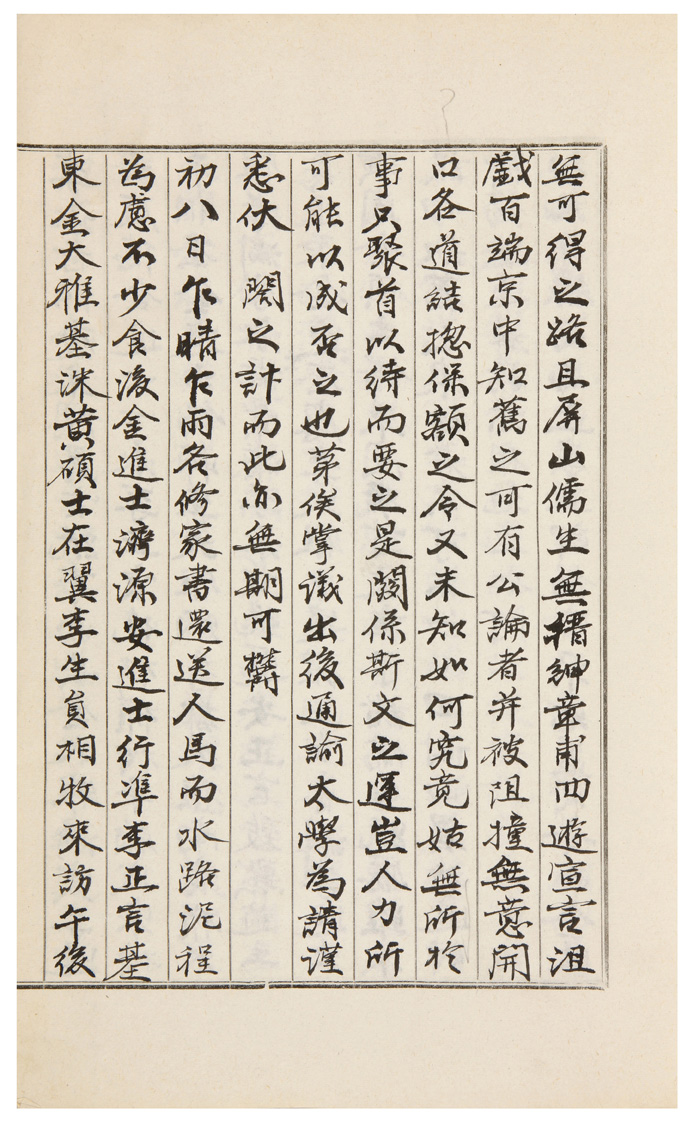 無可得之路且屏山儒生無搢紳章甫四遊宣言沮
戱百端京中知舊之可有公論者并被阻撞無意開
口各道詰揔保額之令又未知如何究竟姑無所於
事只聚首以待而要之是關係斯文之運豈人力所
可能以成否之也苐俟掌議出後通諭太學爲請謹
悉伏閤之計而此亦無期可欝
初八日乍晴乍雨各修家書還送人馬而水路泥程
為慮不少食後金進士濟源安進士行準李正言基
東金大雅基洙黃碩士在翼李生員相牧來訪午後